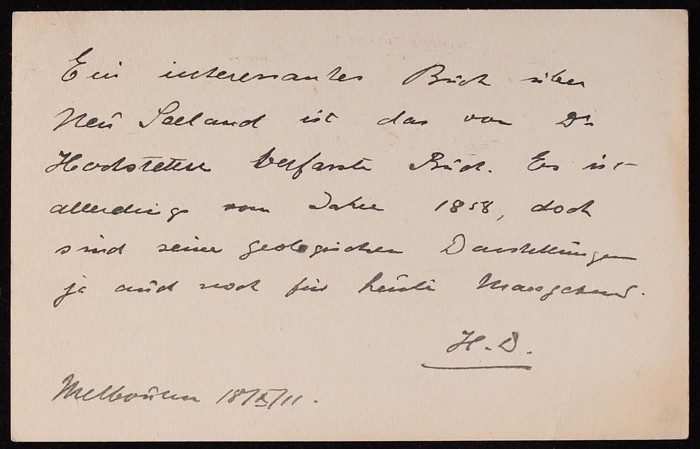 Ein interessantes Buch über
Neu Seeland ist das von Dr
Hochstetter verfasste Buch. Es ist
allerdings vom Jahre 1858, doch
sind seine geologischen Darstellungen
ja auch noch für heute Massgebend.
H. D.
Melbourne 18/X/11.